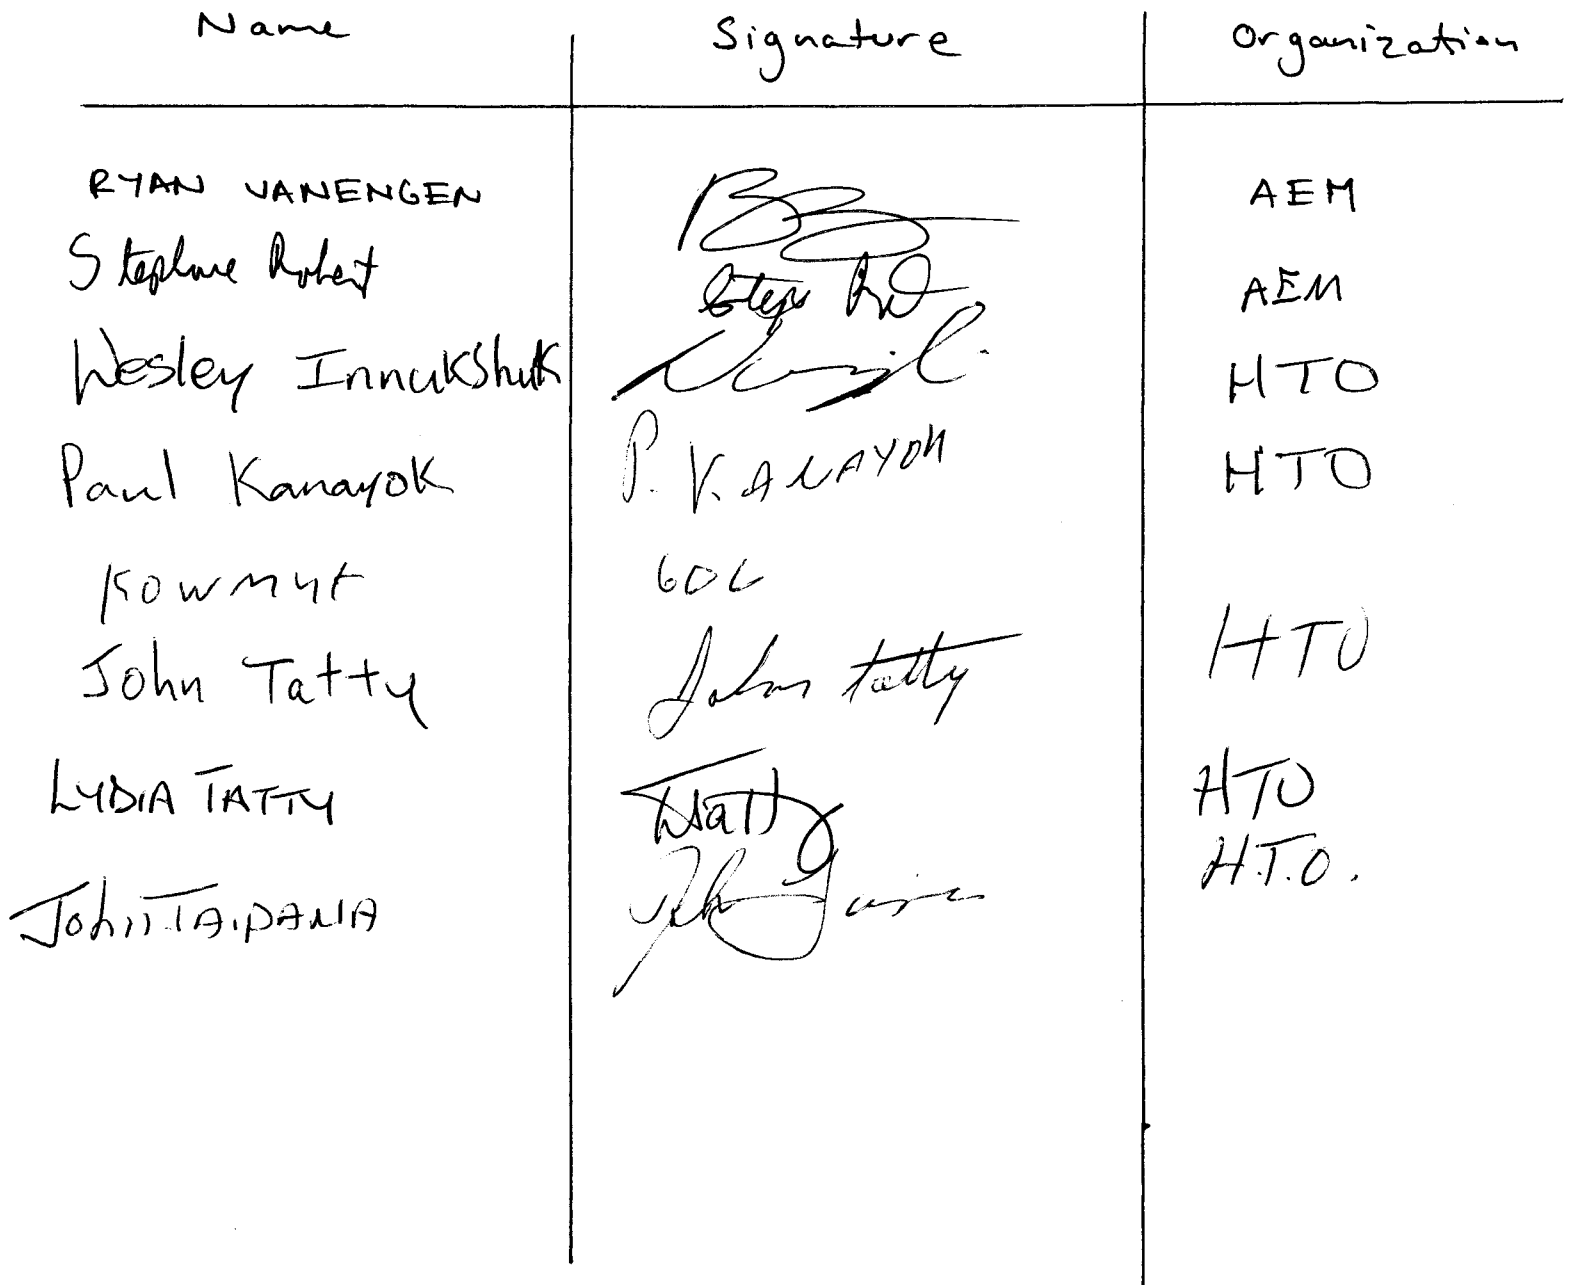 Name Signature Organization
RYAN VANENGEN AEM
Stephane Robert AEM
Wesley Innukshuk HTO
Paul Kanayok P. KANAYOK HTO
KOWMUK
John Tatty John tatty HTO
LYDIA TATTY HTO
John TAIPANA H.T.O.